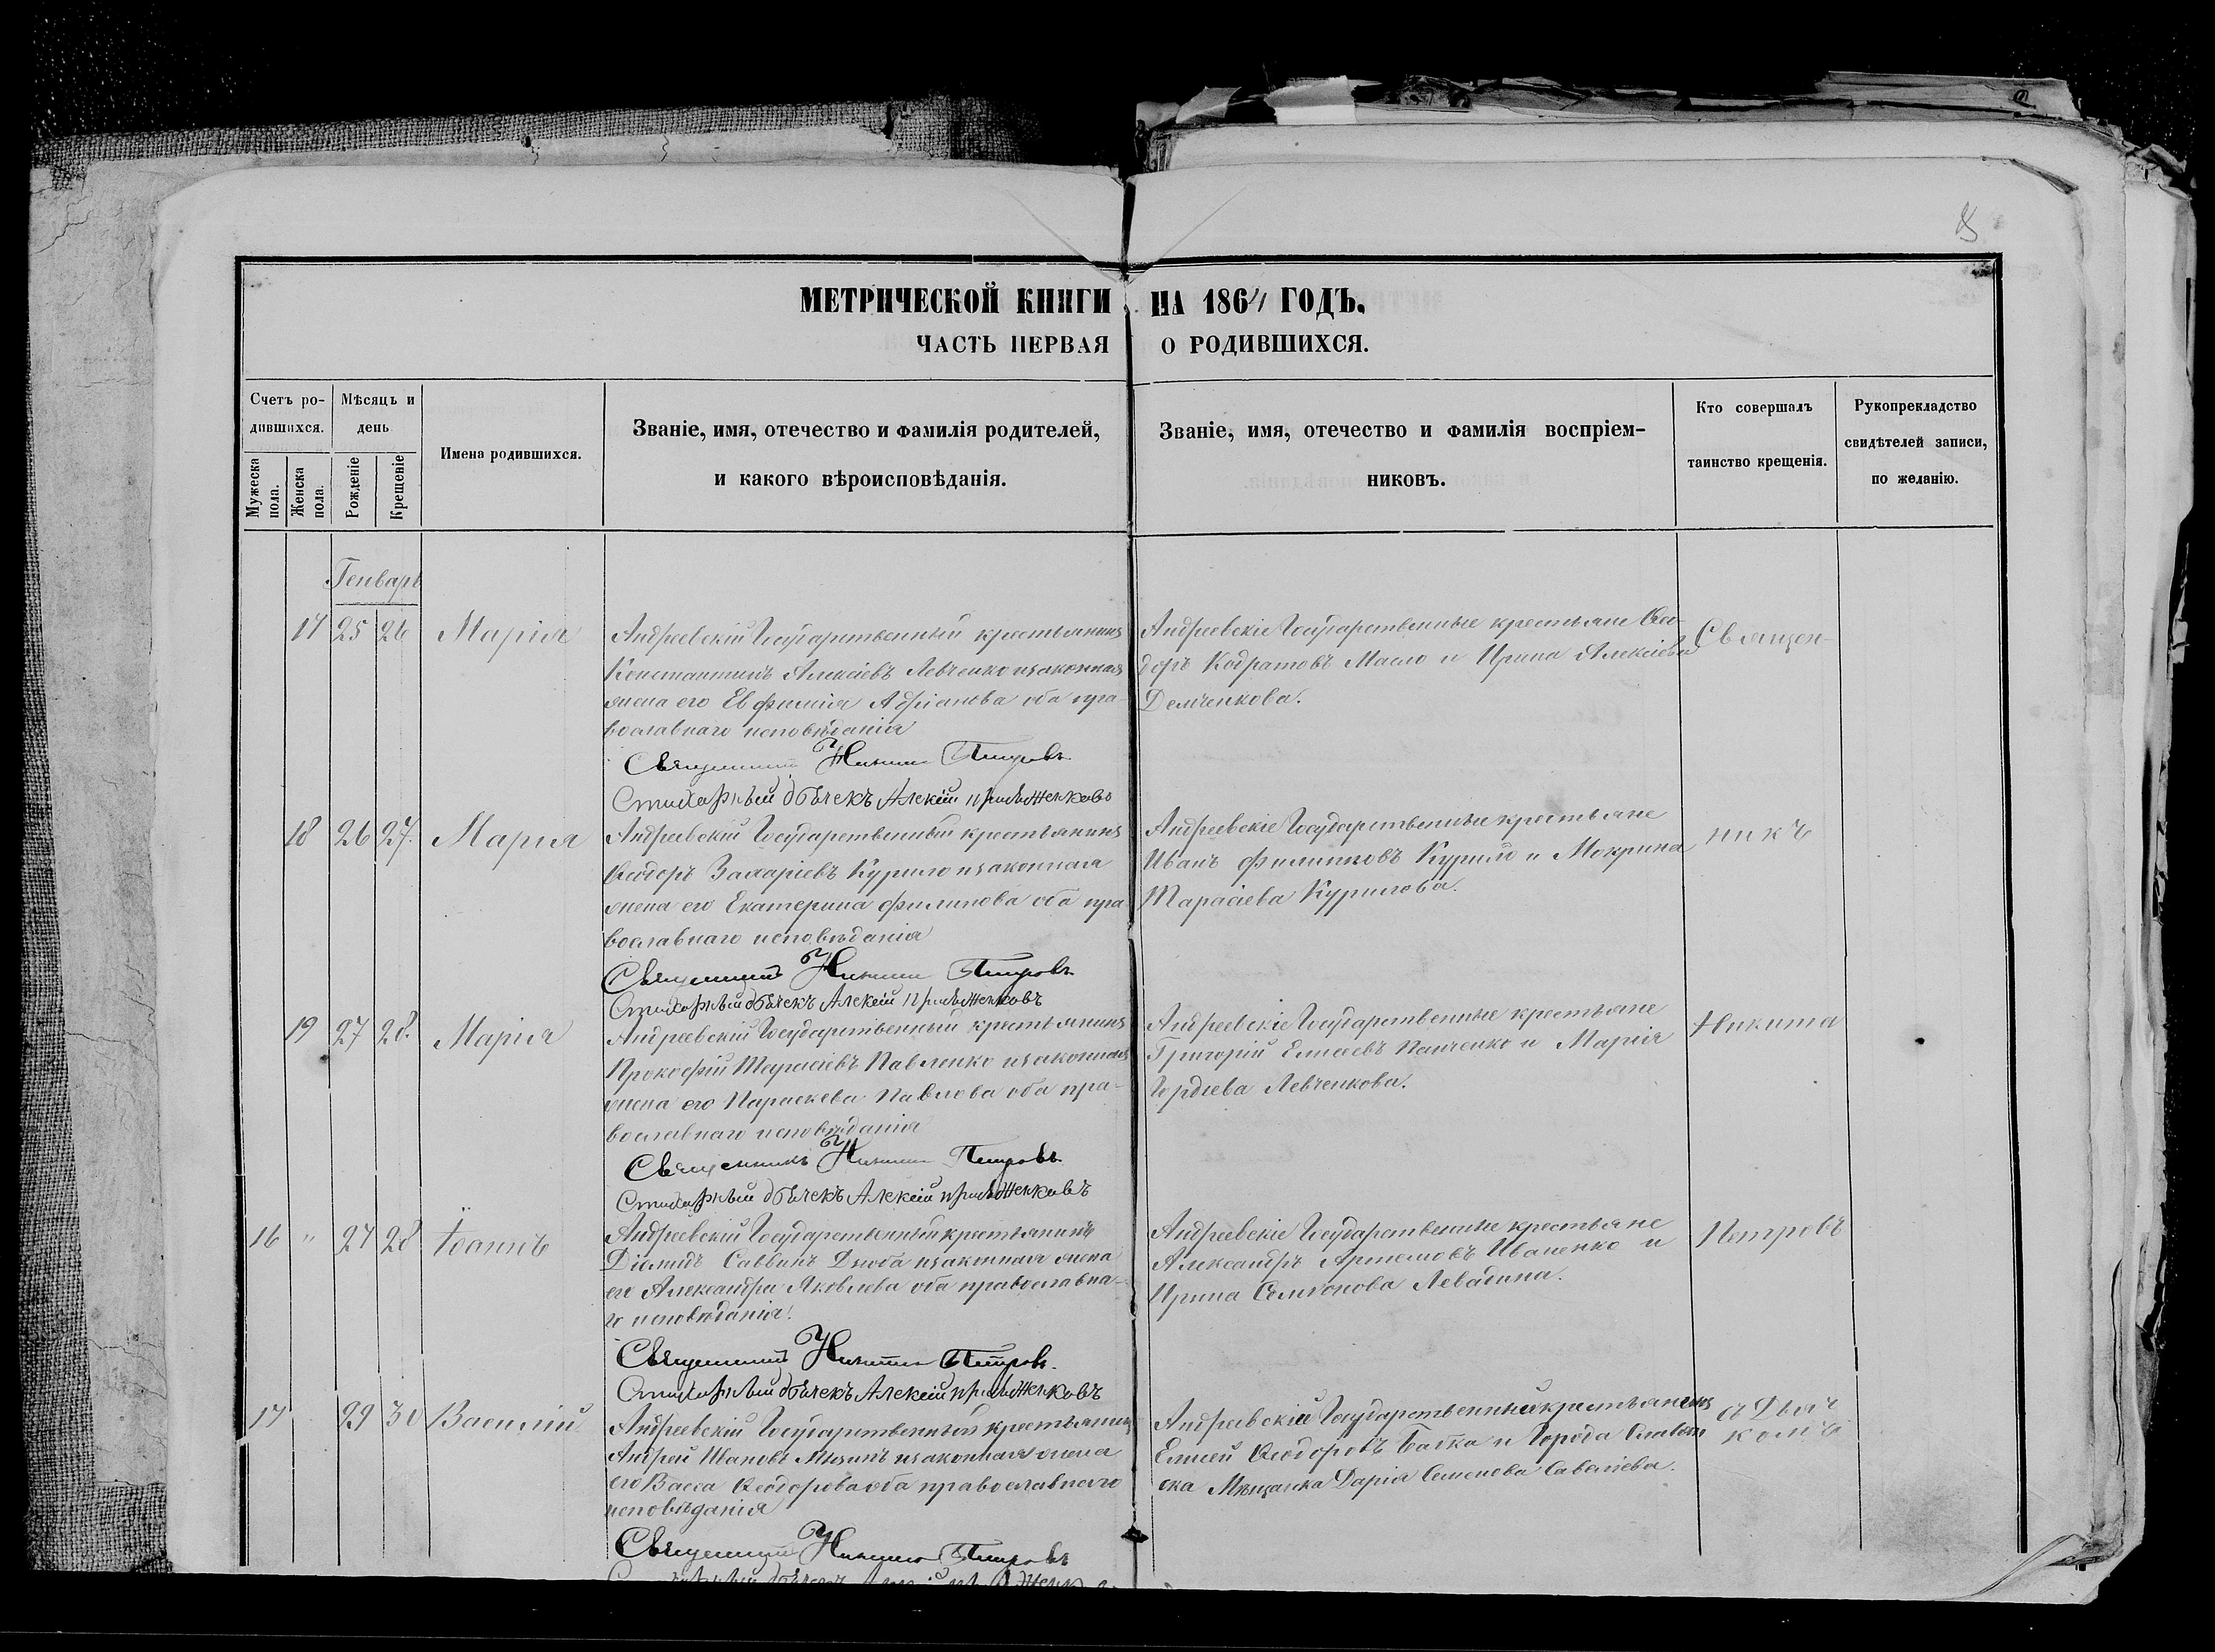 МЕТРИЧЕСКОЙ КНИГИ НА 1864 ГОДЪ.
ЧАСТЬ ПЕРВАЯ О РОДИВШИХСЯ.
Счетъ ро-
дившихся.
Мужеска
пола.
Женска
пола.
Мѣсяцъ и
день
Рожденіе
Крещеніе
Имена родившихся.
Званіе, имя, отечество и фамилія родителей,
и какого вѣроисповѣданія.
Званіе, имя, отечество и фамилія воспріем-
никовъ.
Кто совершалъ
таинство крещенія.
Рукопрекладство
свидѣтелей записи,
по желанію.
Генварь
17 25 26 Марія
Андреевскій Государственный крестьянинъ
Константинъ Алексіевъ Левченко и законная
жена его Евфимія Адріанова оба пра-
вославнаго исповѣданія
Священникъ Никита Петровъ
Стихарный дьячекъ Алексій
Андреевскіе Государственные крестьяне Ѳео-
доръ Кодратовъ Масло и Ирина Алексіева
Демченкова.
Священ-
18 26 27. Марія
Андреевскій Государственный крестьянинъ
Ѳеодоръ Захаріевъ Курило и законная
жена его Екатерина Филипова оба пра
вославнаго исповѣданія
Священникъ Никита Петровъ
Стихарный дьячекъ Алексій
Андреевскіе Государственные крестьяне
Иванъ Филиповъ Курило и Мокрина
Тарасіева Курилова.
никъ
19 27 28. Марія
Андреевскій Государственный крестьянинъ
Прокофій Тарасіевъ Павленко и законная
жена его Параскева Павлова оба пра-
вославнаго исповѣданія
Священникъ Никита Петровъ
Стихарный дьячекъ Алексій
Андреевскіе Государственные крестьяне
Григорій Елисеевъ Панченко и Марія
Гордіева Левченкова.
Никита
16 " 27 28 Іоаннъ
Андреевскій Государственный крестьянинъ
Діомидъ Саввинъ Дзюба и законная жена
его Александра Яковлева оба православна-
го исповѣданія.
Священникъ Никита Петровъ
Стихарный дьячекъ Алексій
Андреевскіе Государственные крестьяне
Александръ Артемовъ Иваненко и
Ирина Самсонова
Петровъ
17 29 30 Василій
Андреевскій Государственный крестьянинъ
Андрей Ивановъ и законная жена
его Васса Ѳеодорова оба православнаго
исповѣданія
Священникъ Никита Петровъ
Андреевскій Государственный крестьянинъ
Елисей Ѳеодоровъ Бабка и Города Славян
ска Мѣщанка Дарія Семенова Савеліева.
съ Дьяч
комъ